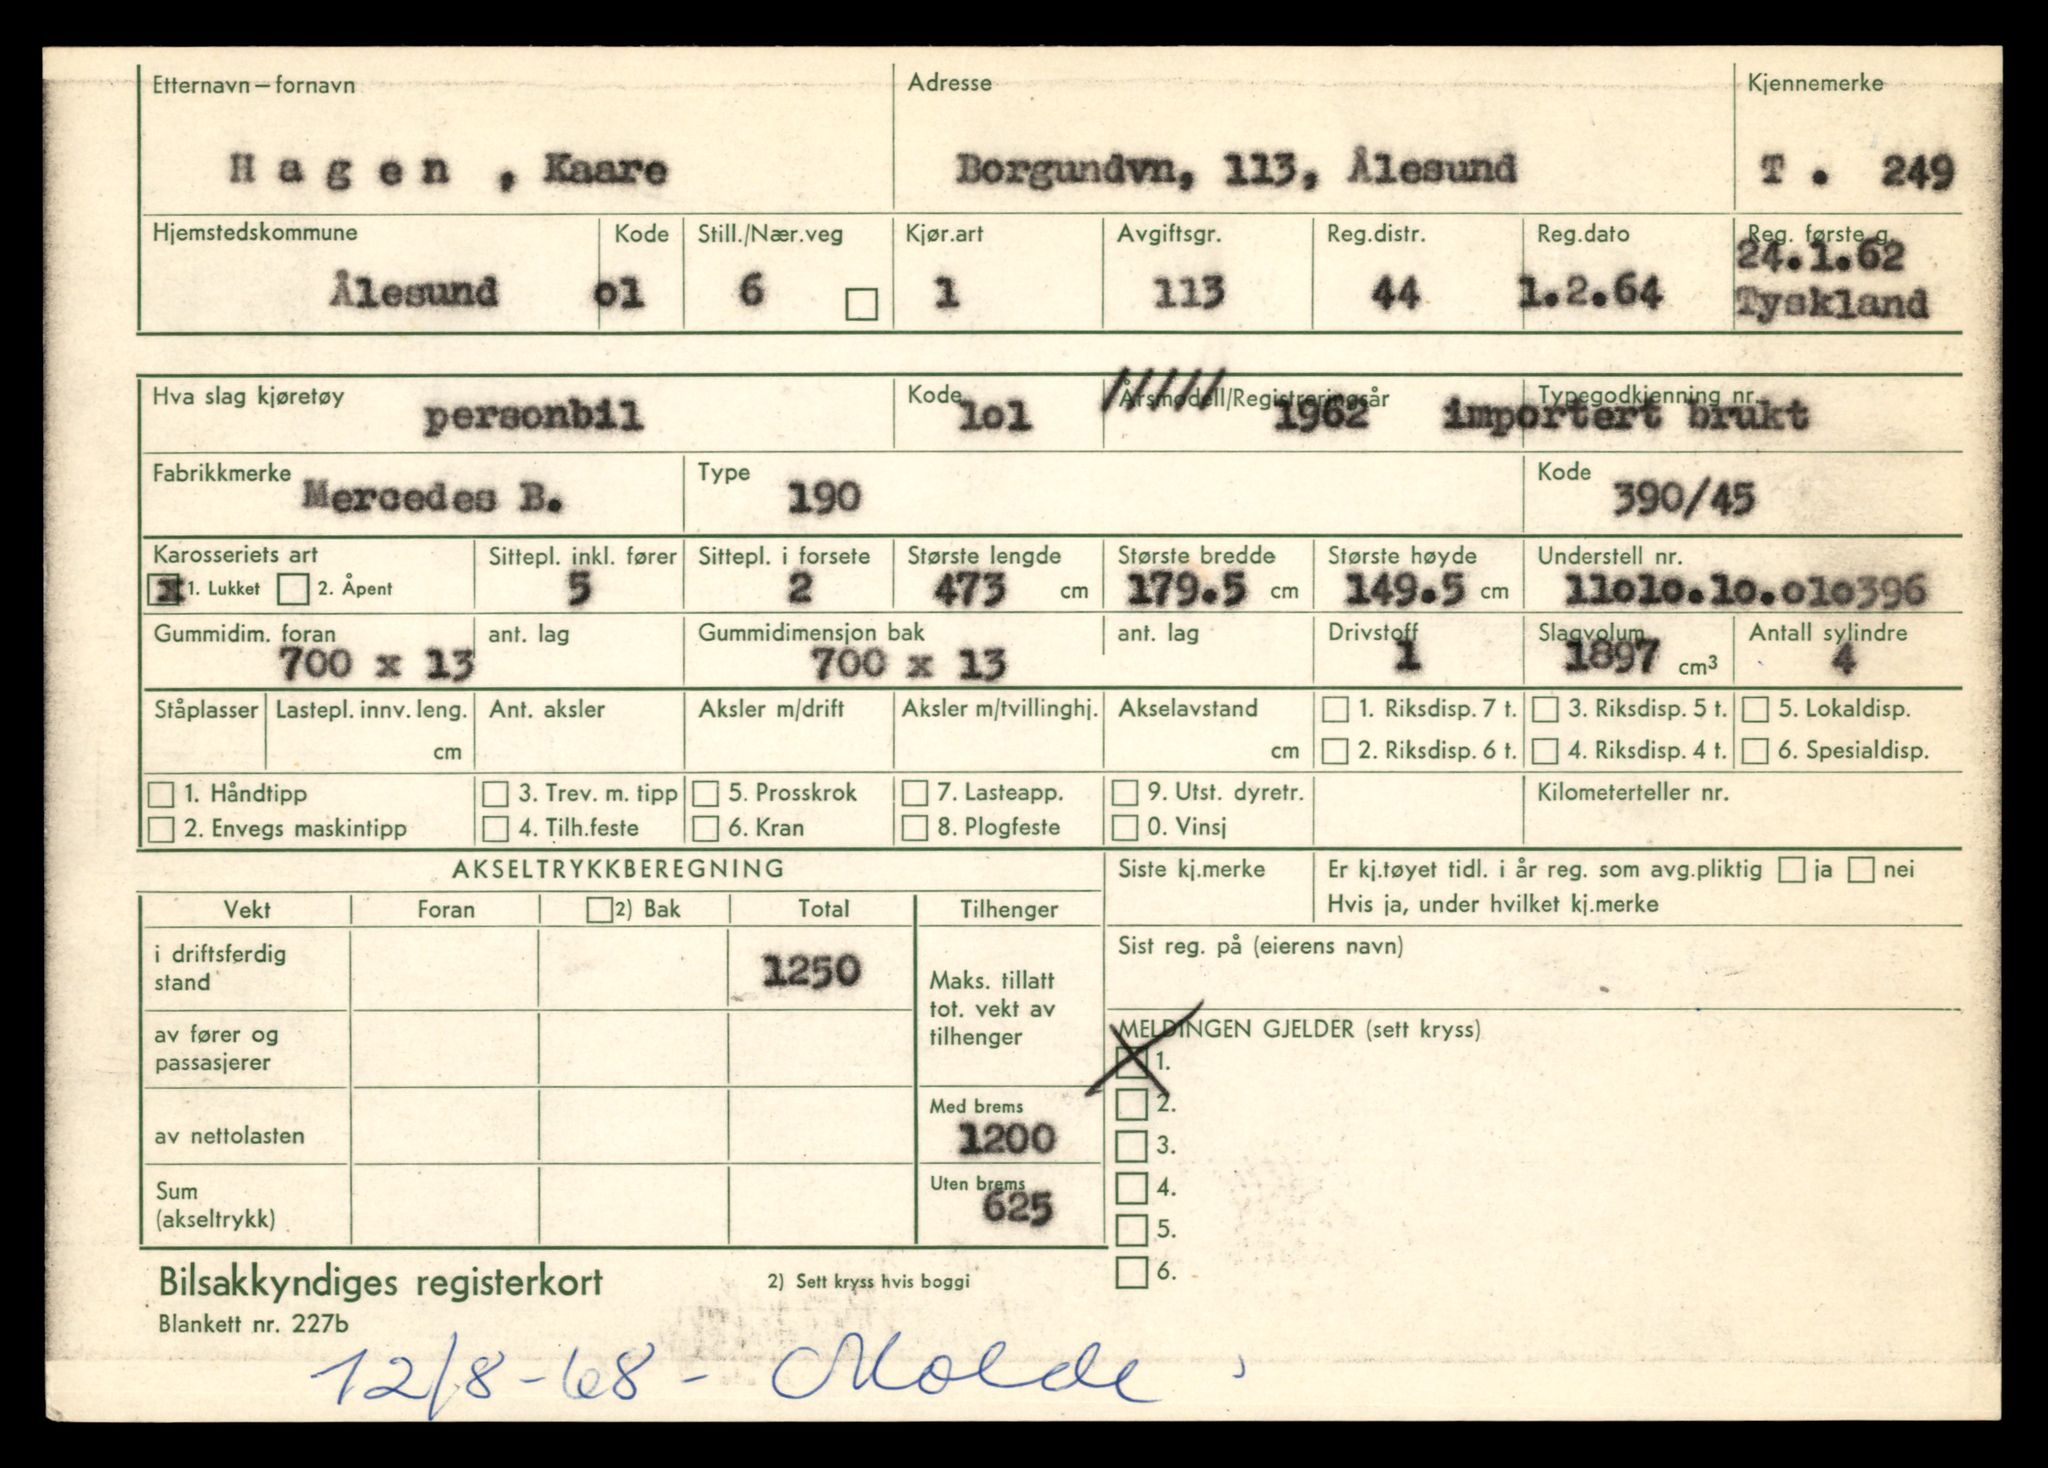 Etternavn – fornavn Adresse Kjennemerke
H a g e n , Kaare Borgundvn, 113, Ålesund T . 249
Hjemstedskommune Kode Still./Nær.veg Kjør.art Avgiftsgr. Reg.distr. Reg.dato Reg. første g.
24.1.62
Ålesund o1 6 1 113 44 1.2.64 Tyskland
Hva slag kjøretøy Kode Årsmodell/Registreringsår Typegodkjenning nr.
personbil 1o1 1962 importert brukt
Fabrikkmerke Type Kode
Mercedes B. 190 390/45
Karosseriets art Sittepl. inkl. fører Sittepl. i forsete Største lengde Største bredde Største høyde Understell nr.
x 1. Lukket 2. Åpent 5 2 473 cm 179.5 cm 149.5 cm 11o1o.1o.o1o396
Gummidim. foran ant. lag Gummidimensjon bak ant. lag Drivstoff Slagvolum Antall sylindre
700 x 13 700 x 13 1 1897 cm³ 4
Ståplasser Lastepl. innv. leng. Ant. aksler Aksler m/drift Aksler m/tvillinghj. Akselavstand 1. Riksdisp. 7 t. 3. Riksdisp. 5 t. 5. Lokaldisp.
cm cm 2. Riksdisp. 6 t. 4. Riksdisp. 4 t. 6. Spesialdisp.
1. Håndtipp 3. Trev. m. tipp 5. Prosskrok 7. Lasteapp. 9. Utst. dyretr. Kilometerteller nr.
2. Envegs maskintipp 4. Tilh.feste 6. Kran 8. Plogfeste 0. Vinsj
AKSELTRYKKBEREGNING Siste kj.merke Er kj.tøyet tidl. i år reg. som avg.pliktig ja nei
Hvis ja, under hvilket kj.merke
Vekt Foran 2) Bak Total Tilhenger
Sist reg. på (eierens navn)
i driftsferdig
stand 1250
Maks. tillatt
tot. vekt av
tilhenger
MELDINGEN GJELDER (sett kryss)
av fører og
passasjerer
1.
2.
3.
4.
5.
6.
Med brems
av nettolasten 1200
Uten brems
Sum
(akseltrykk) 625
Bilsakkyndiges registerkort 2) Sett kryss hvis boggi
Blankett nr. 227b
12/8-68 - Molde